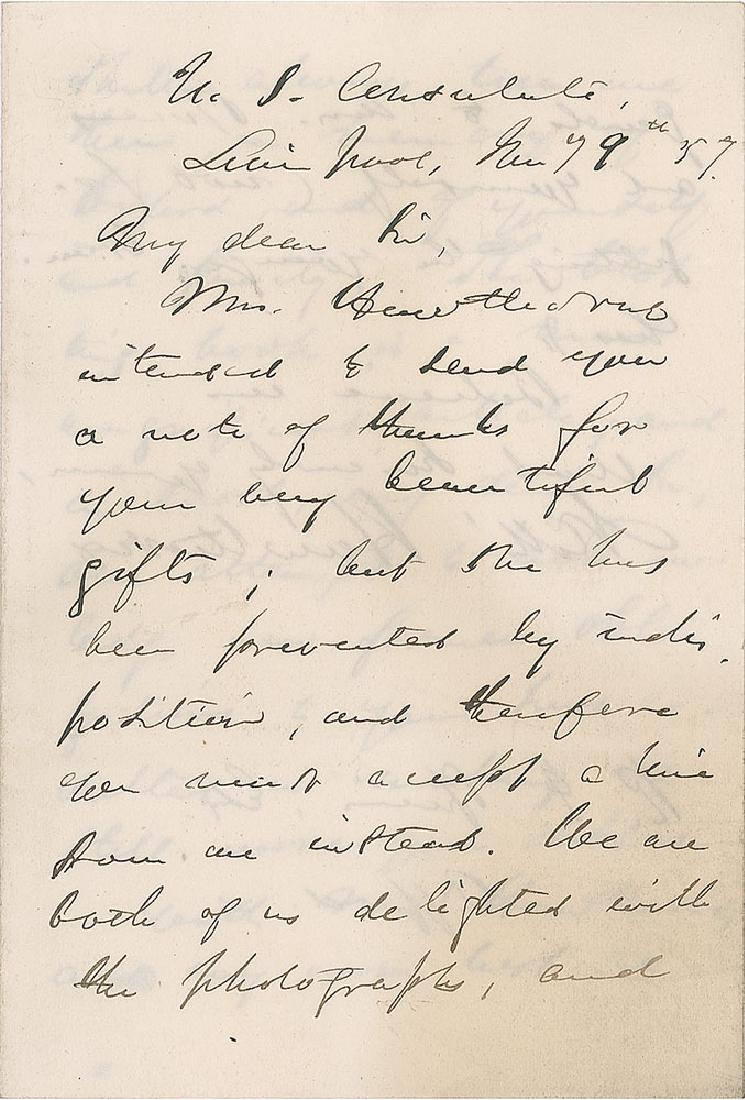 U. S. Consulate,
Liverpool, 9th '57.
My dear Sir,
Mrs. Hawthorne
intended to send you
a note of thanks for
your very beautiful
gifts; but she has
been prevented by indis-
position, and therefore
you must accept a line
from me instead. We are
both of us delighted with
the photographs, and